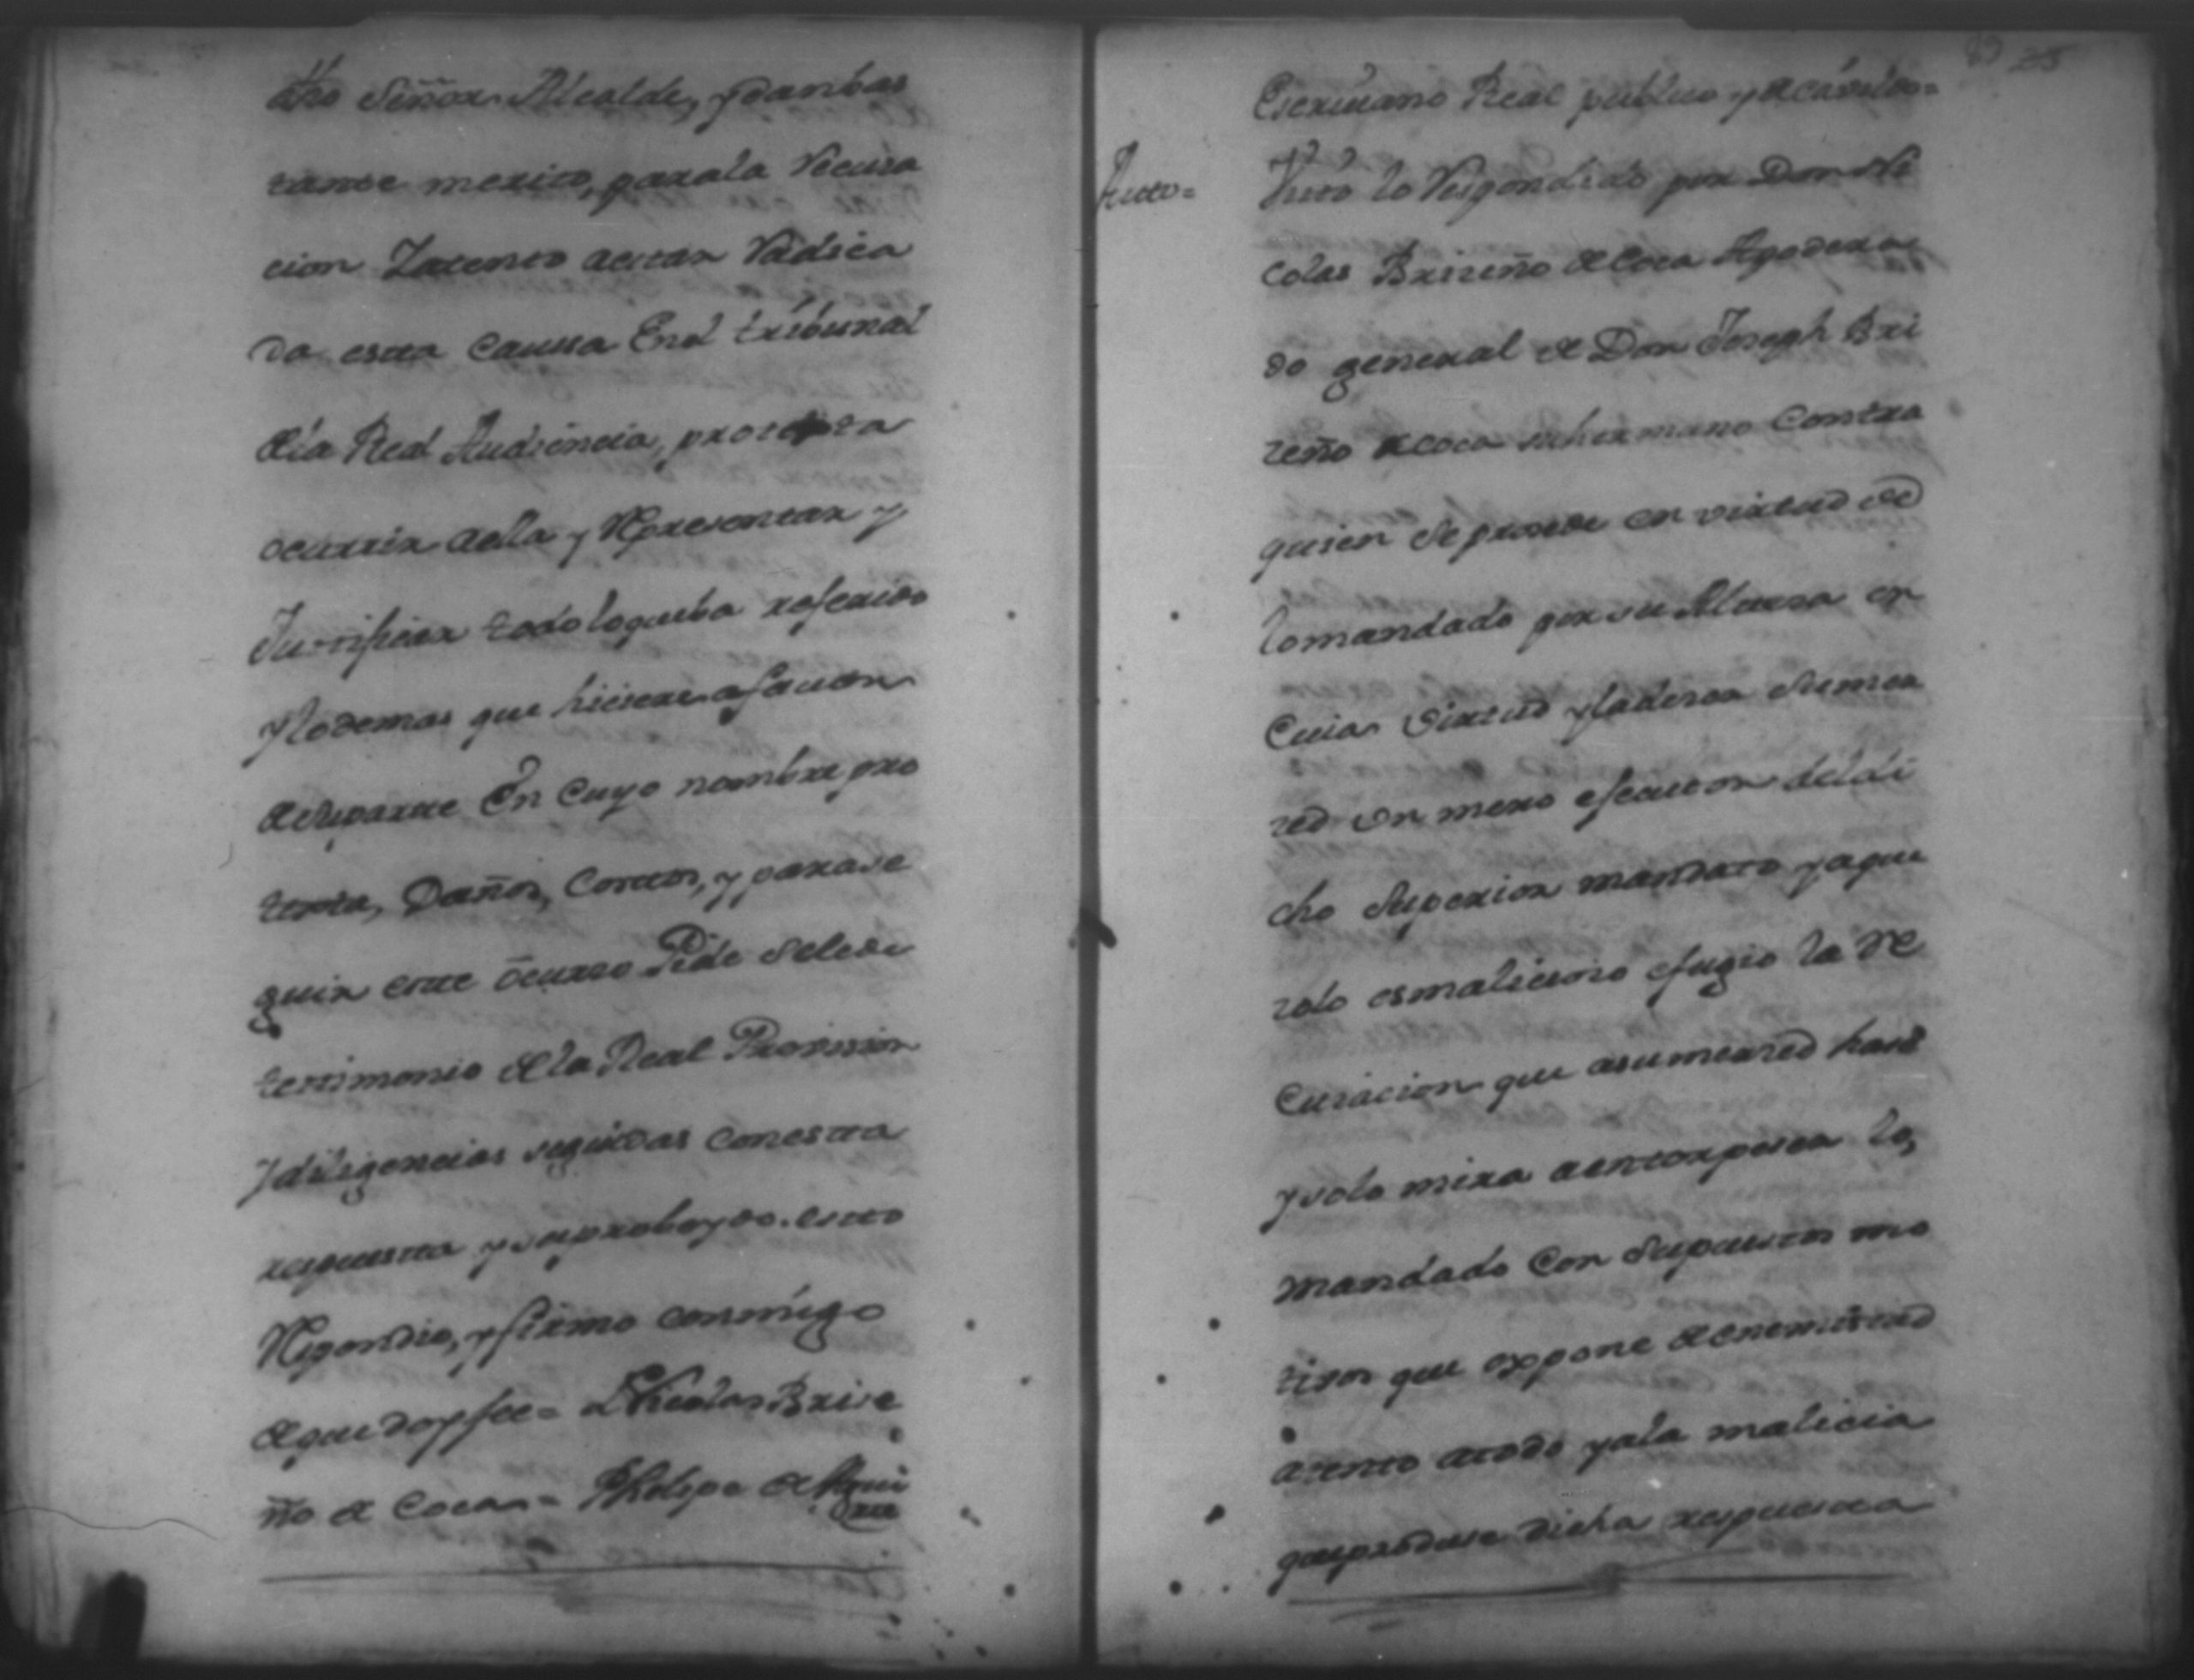 dho Señor Alcalde, y dan bas
tante merito, para la Recusa
cion Zatento aestar Radica
da esta Caussa En el tribunal
de la Real Audiencia, protesta
ocurrir aella y Representar y
Justificar todo loqueba referido
y lodemas que hiciere afauor
desuparte En Cuyo nombre pro
testa, Daños, Costtos, y parase
guir este ocurso Pide Selede
testimonio de la Real Provission
Y diligencias seguidas con estta
respuestta y suprobeydo. estto
Respondio, y firmo conmigo
deque doy fee = Nicolas Brise
ño de Coca = Phelipe de Aqui
Escriuano Real publico y de cauildo =
Auto = Visto lo Respondido por Don Ni
colas Briseño de Coca Apodera
do general de Don Joseph Bri
zeño de Coca su hermano Contra
quien se prosede en virtud de
lo mandado por su Alteza en
Cuia Virtud y la deser Sumer
zed un mero esecutor deldi
cho Superior mandato y aque
solo es malicioso efugio la Re
Cusacion que asumerzed hase
y solo mira a entorpeser lo
mandado Con Supuestos mo
tivos que expone de enemistad
atento atodo yala malicia
queproduse dicha respuesta